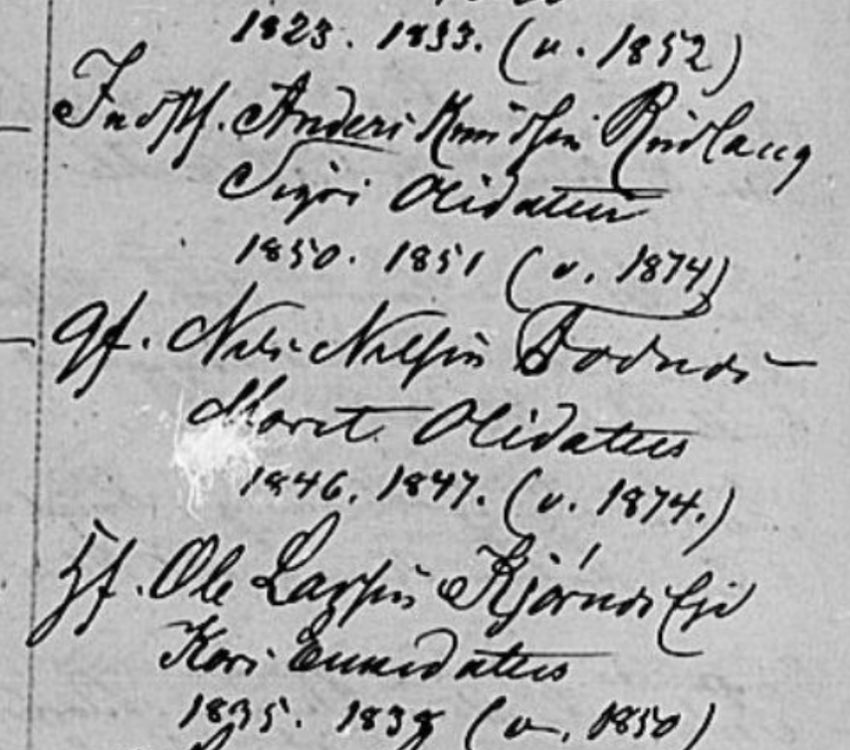 1823. 1833. (v. 1852)
Indstf. Anders Knudsen Rudlang
Sigri Olsdatter
1850. 1851 (v. 1874)
Gf. Nils Nilsen Todnes
Marit Olsdatter
1846. 1847. (v. 1874.)
Hf. Ole Larsen Kjørnes Eje
Kari Enersdatter
1835. 1838 (v. 1850)